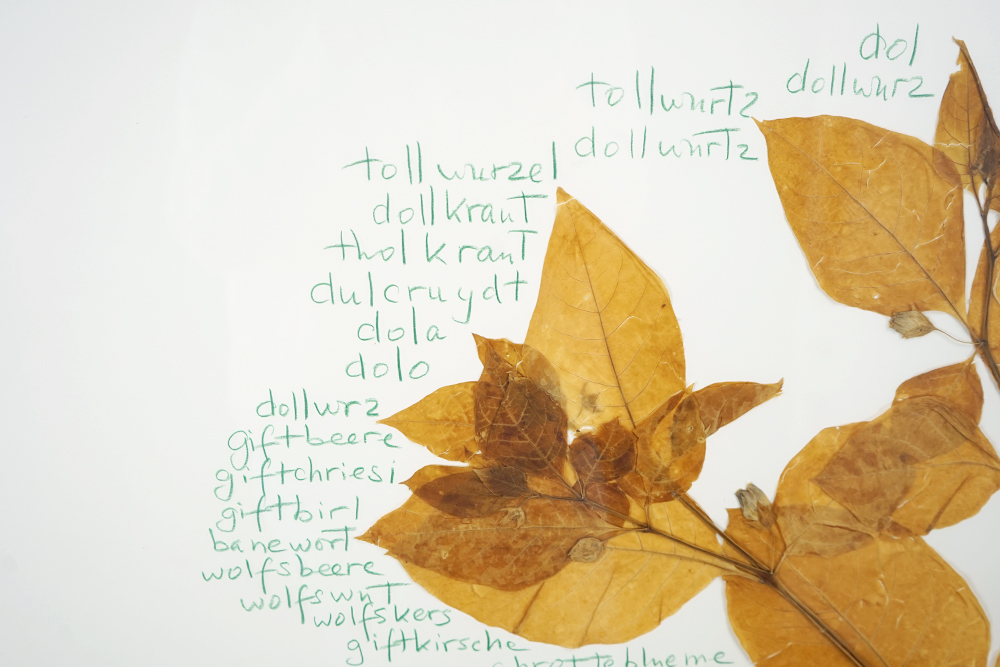 dol
dollwurz
tollwurtz
dollwurtz
tollwurzel
dollkraut
tholkraut
dulcruydt
dola
dolo
dollwrz
giftbeere
giftchriesi
giftbirl
banewort
wolfsbeere
wolfswut
wolfskers
giftkirsche